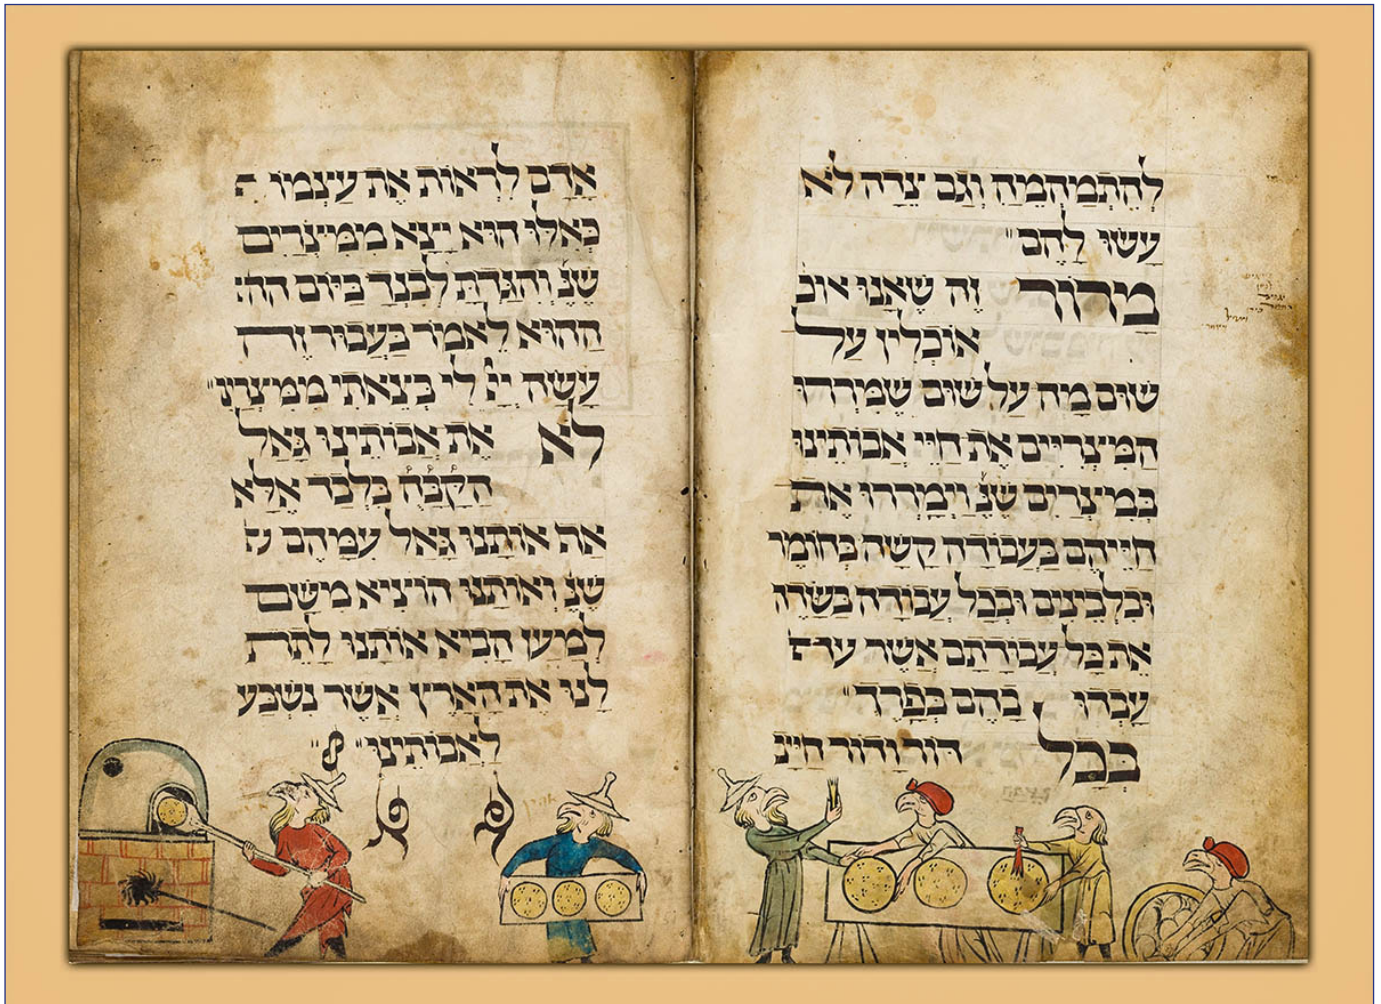 להתמהמה וגם צדה לא
עשו להם״
מרור זה שאנו אוכ
אוכלין על
שום מה על שום שמררו
המצריים את חיי אבותינו
במצרים שנ׳ וימררו את
חייהם בעבודה קשה בחומר
ובלבינים ובכל עבודה בשדה
את כל עבודתם אשר
עבדו בהם בפרך״
בכל דור ודור חייב
אדם לראות את עצמו
כאלו הוא יצא ממצרים
שנ׳ והגדת לבנך ביום הה
ההוא לאמר בעבור זה
עשה ייי לי בצאתי ממצרים״
לא את אבותינו גאל
הקבה בלבד אלא
אף אותנו גאל עמהם
שנ׳ ואותנו הוציא משם
למען הביא אותנו לתת
לנו את הארץ אשר נשבע
לאבותינו״